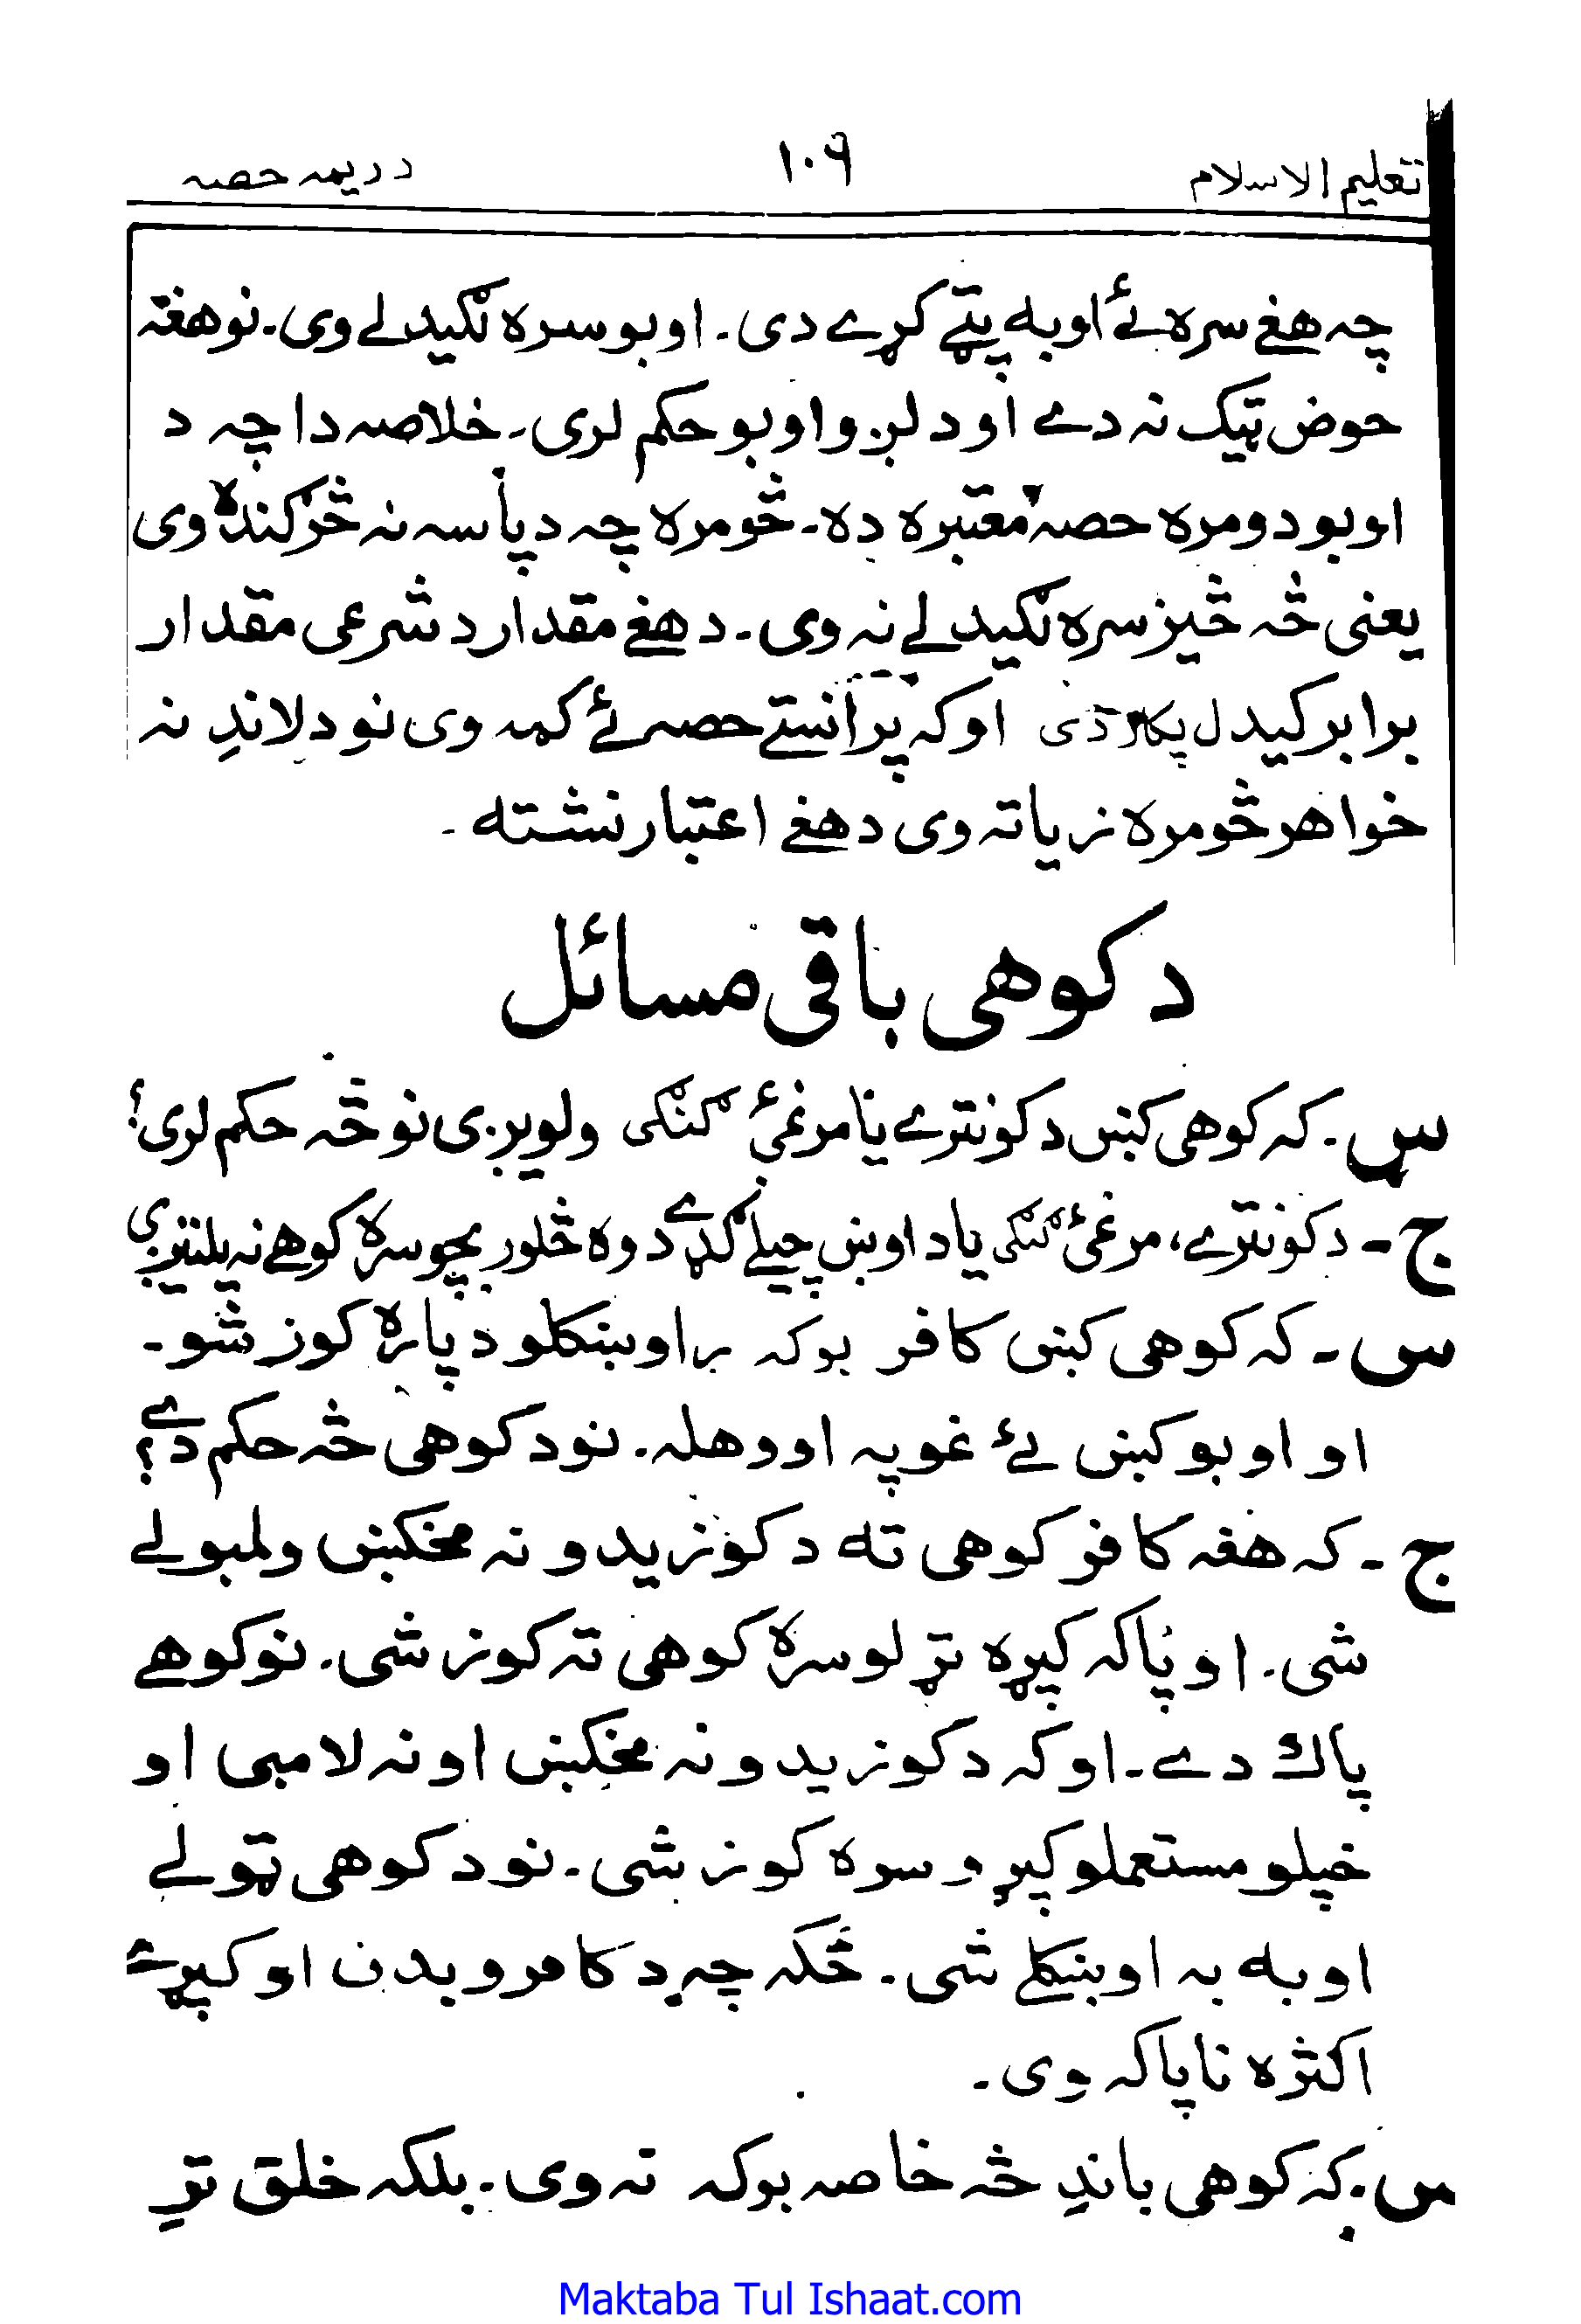 تعلیم الاسلام ۱۰۹ دریمه حصه
چه هغے سره ئے اوبه پټے کړے دی۔ اوبو سره لګیدلے وی۔ نو هغه
حوض ټیک نه دے او د لږو اوبو حکم لری۔ خلاصه دا چه د
اوبو دومره حصه معتبره ده۔ څومره چه د پاسه نه څرګنده وی
یعنی څه څیز سره لګیدلے نه وی۔ د هغے مقدار د شرعی مقدار
برابر کیدل پکار دی او که پرانستے حصه ئے کمه وی نو د لاندِ نه
خواهر څومره زیاته وی د هغے اعتبار نشته۔
د کوهی باقی مسائل
س۔ که کوهی کښں د کونترے یا مرغئ ګنګی ولویږی نو څه حکم لری؟
ج۔ د کونترے، مرغئ ګنګی یا د اوښ چیلے ګډے د وه څلور بچو سره کوهے نه پلیتیږی
س۔ که کوهی کښی کافر بوکه راوښکلو دپاره کوز شو۔
او اوبو کښں ئے غوپه اووهله۔ نو د کوهی څه حکم دے؟
ج۔ که هغه کافر کوهی ته د کوزیدو نه مخکښں ولمبولے
شی۔ او پاکه کپړه تړلو سره کوهی ته کوز شی۔ نو کوهے
پاك دے۔ او که د کوزیدو نه مخکښں او نه لامبی او
خپلو مستعملو کپړو سره کوز شی۔ نو د کوهی ټولے
اوبه به اوښکلے شی۔ څکه چه د کافرو بدن او کپړے
اکثره ناپاکه وی۔
س۔ که کوهی باندِ څه خاصه بوکه نه وی۔ بلکه خلق ترِ
Maktaba Tul Ishaat.com